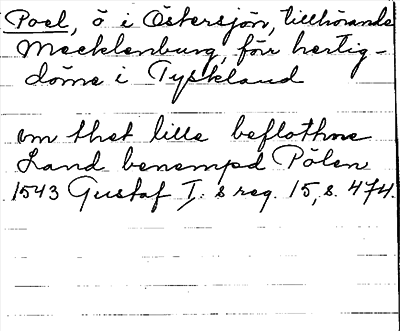 Poel, ö i Östersjön, tillhörande
Mecklenburg, förr hertig-
döme i Tyskland
om thet lille beflothne
Land benempd Pölen
1543 Gustaf I:s reg. 15, s. 474.